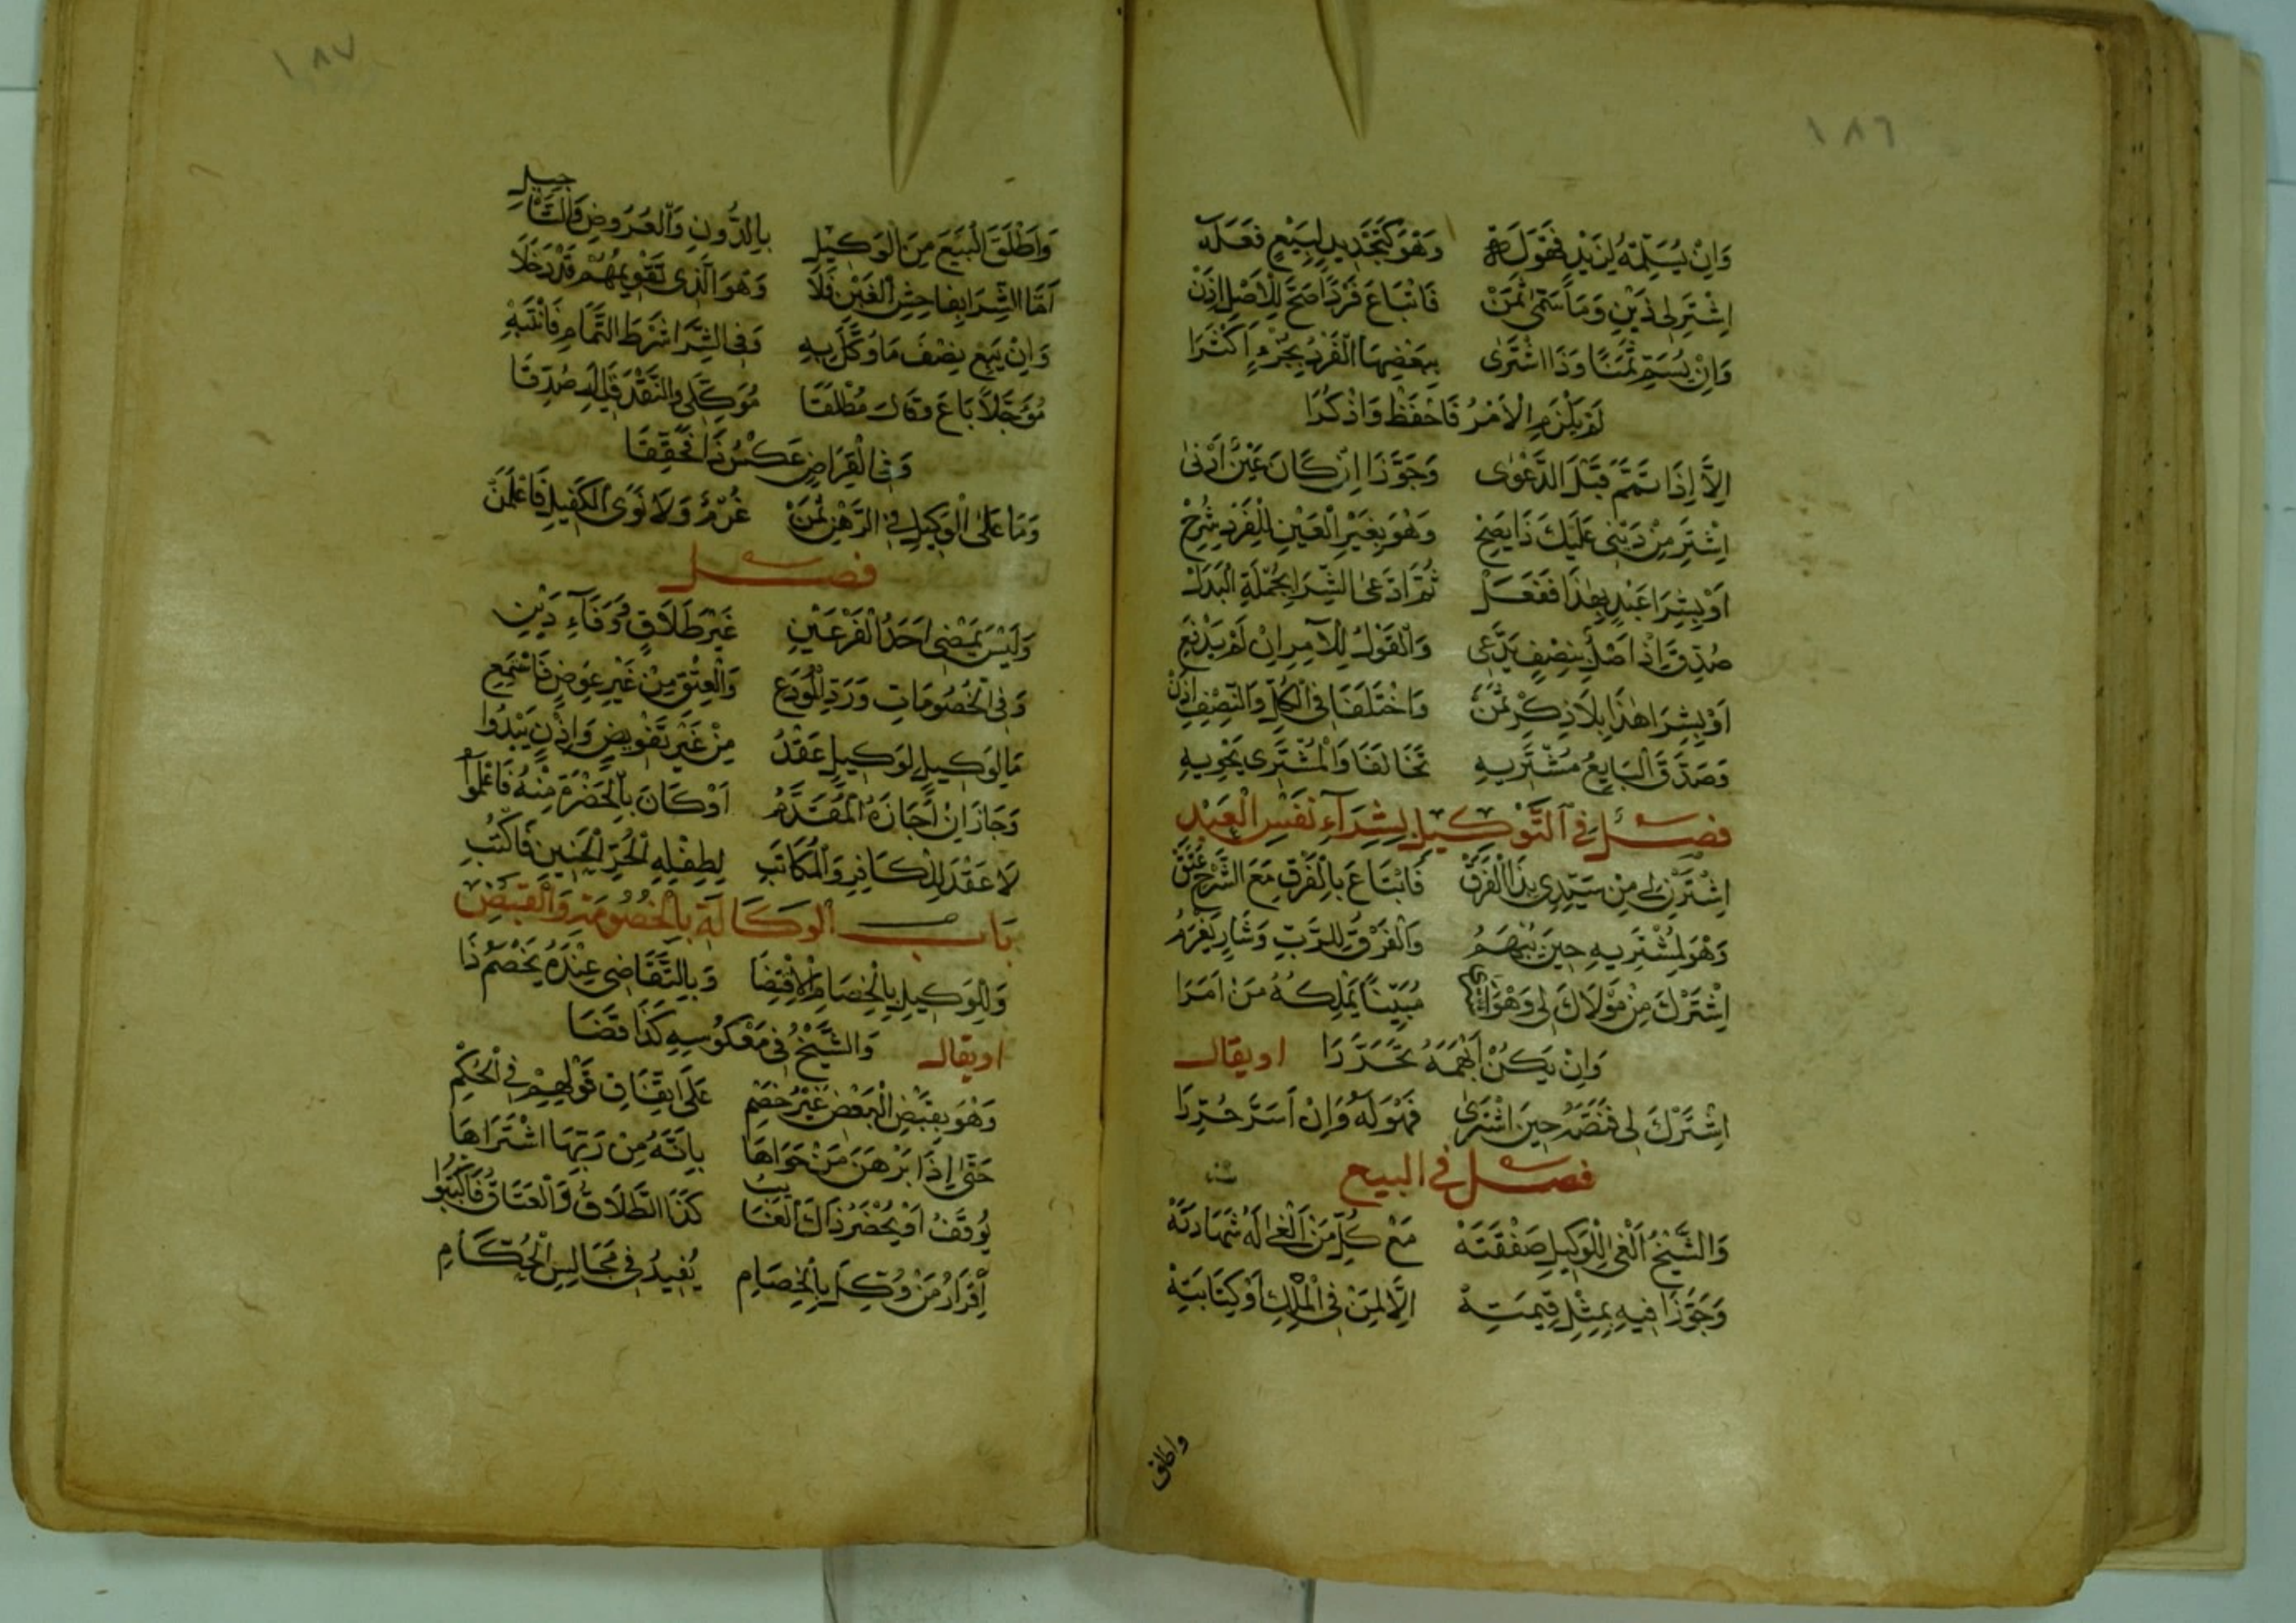 ١٨٦
وَاِنْ يُسَلِّمْهُ لِزَيْدٍ فَهْوَ لَهْ وَهْوَ كَتَجْدِيدٍ لِبَيْعٍ فَعَلَهْ
اِشْتَرِ لِي ذَيْنِ وَمَا سَمَّى ثَمَنْ فَابْتَاعَ فَرْدًا صَحَّ لِلْاَصْلِ اِذَنْ
وَاِنْ يُسَمِّ ثَمَنًا وَذَا اشْتَرٰى بِبَعْضِهَا الْفَرْدَ بِجُزْءٍ اَكْثَرَا
لَمْ يَلْزَمِ الْاٰمِرَ فَاحْفَظْ وَاذْكُرَا
اِلَّا اِذَا تَمَّمَ قَبْلَ الدَّعْوٰى وَجَوَّزَا اِنْ كَانَ غَبْنٌ اَدْنٰى
اِشْتَرِ مِنْ دَيْنِي عَلَيْكَ ذَا يَصِحْ وَهْوَ بِغَيْرِ الْعَيْنِ لِلْفَرْدِ شُرِحْ
اَوْ بِشِرَا عَبْدٍ بِهٰذَا فَفَعَلْ ثُمَّ ادَّعَى الشِّرَا بِجُمْلَةِ الْبَدَلْ
صُدِّقَ اِذْ اَصْلٌ بِنِصْفٍ يَدَّعِى وَالْقَوْلُ لِلْاٰمِرِ اِنْ لَمْ يَدْفَعِ
اَوْ بِشِرَا هٰذَا بِلَا ذِكْرِ ثَمَنْ وَاخْتَلَفَا فِي الْكُلِّ وَالنِّصْفِ اِذَنْ
وَصَدَّقَ الْبَايِعُ مُشْتَرِيهِ تَحَالَفَا وَالْمُشْتَرِى يَحْوِيهِ
فصل في التَّوْكِيلِ بِشِرَآءِ نَفْسِ الْعَبْدِ
اِشْتَرِنِي لِي مِنْ سَيِّدِي بِذَا الْفَرَقْ فَابْتَاعَ بِالْفَرْقِ مَعَ الشَّرْحِ عُتِقْ
وَهْوَ لِمُشْتَرِيهِ حِينَ يُبْهَمُ وَالْفَرْقُ لِلرَّبِّ وَشَارٍ يَغْرَمُ
اِشْتَرْكَ مِنْ مَوْلَاكَ لِي وَهْوَ مُبَيِّنًا يَمْلِكُهُ مَنْ اَمَرَا
وَاِنْ يَكُنْ اَبْهَمَهُ تَحَرَّرَا اويقال
اِشْتَرْكَ لِي فَنَصَّهُ حِينَ اشْتَرٰى فَهْوَ لَهُ وَاِنْ اَسَرَّ حُرِّرَا
فصل في البيع
وَالشَّيْخُ اَلْغٰى لِلْوَكِيلِ صَفْقَتَهْ مَعْ كُلِّ مَنْ اَلْغٰى لَهُ شَهَادَتَهْ
وَجَوَّزَا فِيهِ بِمِثْلِ قِيمَتِهْ اِلَّا لِمَنْ فِي الْمِلْكِ اَوْ كِتَابَتِهْ
واطلق
١٨٧
وَاَطْلَقَ الْبَيْعَ مِنَ الْوَكِيلِ بِالدُّونِ وَالْعُرُوضِ وَالتَّأْجِيلِ
اَمَّا الشِّرَا بِفَاحِشِ الْغَبْنِ فَلَا وَهْوَ الَّذِى تَقْوِيمَهُمْ قَدْ دَخَلَا
وَاِنْ يَبِعْ نِصْفَ مَا وُكِّلَ بِهِ وَفِي الشِّرَا شَرْطُ التَّمَامِ فَانْتَبِهْ
مُؤَجَّلًا بَاعَ وَقَالَ مُطْلَقًا مُوَكِّلِي وَالنَّقْدَ قِيلَ صُدِّقَا
وَفِي الْقِرَاضِ عَكْسُ ذَا فَحَقِّقَا
وَمَا عَلَى الْوَكِيلِ فِي الرَّهْنِ ثَمَنْ غُرْمٌ وَلَا تَوَى الْكَفِيلِ فَاعْلَمَنْ
فصل
وَلَيْسَ يَمْضِى اَحَدُ الْفَرْعَيْنِ غَيْرَ طَلَاقٍ وَوَفَآءِ دَيْنِ
وَفِي الْخُصُومَاتِ وَرَدِّ الْمُودَعِ وَالْعِتْقِ مِنْ غَيْرِ عِوَضٍ فَاسْتَمِعِ
مَا لِوَكِيلٍ لِوَكِيلٍ عَقْدُ مِنْ غَيْرِ تَفْوِيضٍ وَاِذْنٍ يَبْدُوا
وَجَازَ اِنْ اَجَازَهُ الْمُقَدَّمُ اَوْ كَانَ بِالْحَضْرَةِ مِنْهُ فَاعْلَمُوا
لَا عَقْدَ لِلْكَافِرِ وَالْمُكَاتَبِ لِطِفْلِهِ الْحُرِّ الْجَنِينِ فَاكْتُبِ
باب الوَكَالَةِ بِالْخُصُومَةِ وَالْقَبْضِ
وَلِلْوَكِيلِ بِالْخِصَامِ الْاِقْتِضَا وَبِالتَّقَاضِى عِنْدَهُ يَخْصِمُ ذَا
اويقال وَالشَّيْخُ فِي مَعْكُوسِهِ كَذَا قَضَا
وَهْوَ بِقَبْضِ الْبَعْضِ غَيْرُ خَصْمِ عَلَى اتِّفَاقِ قَوْلِهِمْ فِي الْحُكْمِ
حَتّٰى اِذَا بَرْهَنَ مَنْ حَوَاهَا بِاَنَّهُ مِنْ رَبِّهَا اشْتَرَاهَا
يُوقَفُ اَوْ يُحْضَرُ ذَاكَ الْغَايِبُ كَذَا الطَّلَاقُ وَالْعَتَاقُ فَاكْتُبُوا
اِقْرَارُ مَنْ وُكِّلَ بِالْخِصَامِ يُفِيدُ فِي مَجَالِسِ الْحُكَّامِ